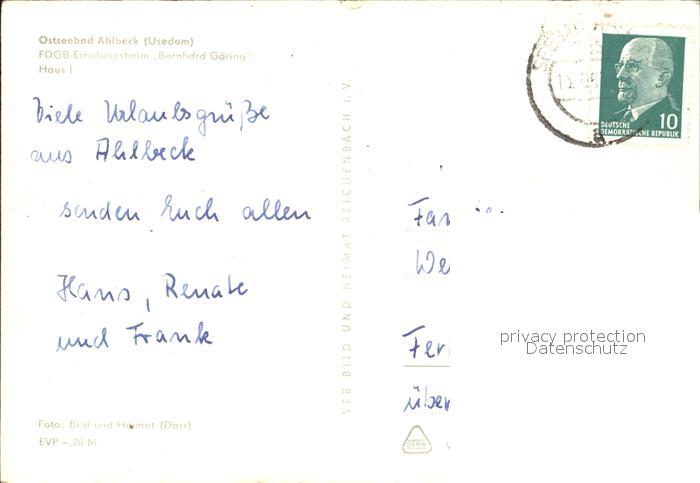 Ostseebad Ahlbeck (Usedom)
FDGB-Erholungsheim „Bernhard Göring",
Haus I
Viele Urlaubsgrüße
aus Ahlbeck
senden Euch allen
Hans, Renate
und Frank
Foto: Bild und Heimat (Darr)
EVP –,20 M
VEB BILD UND HEIMAT REICHENBACH i. V.
10
DEUTSCHE
DEMOKRATISCHE REPUBLIK
Fam
We
Fer
über
privacy protection
Datenschutz
DEWAG